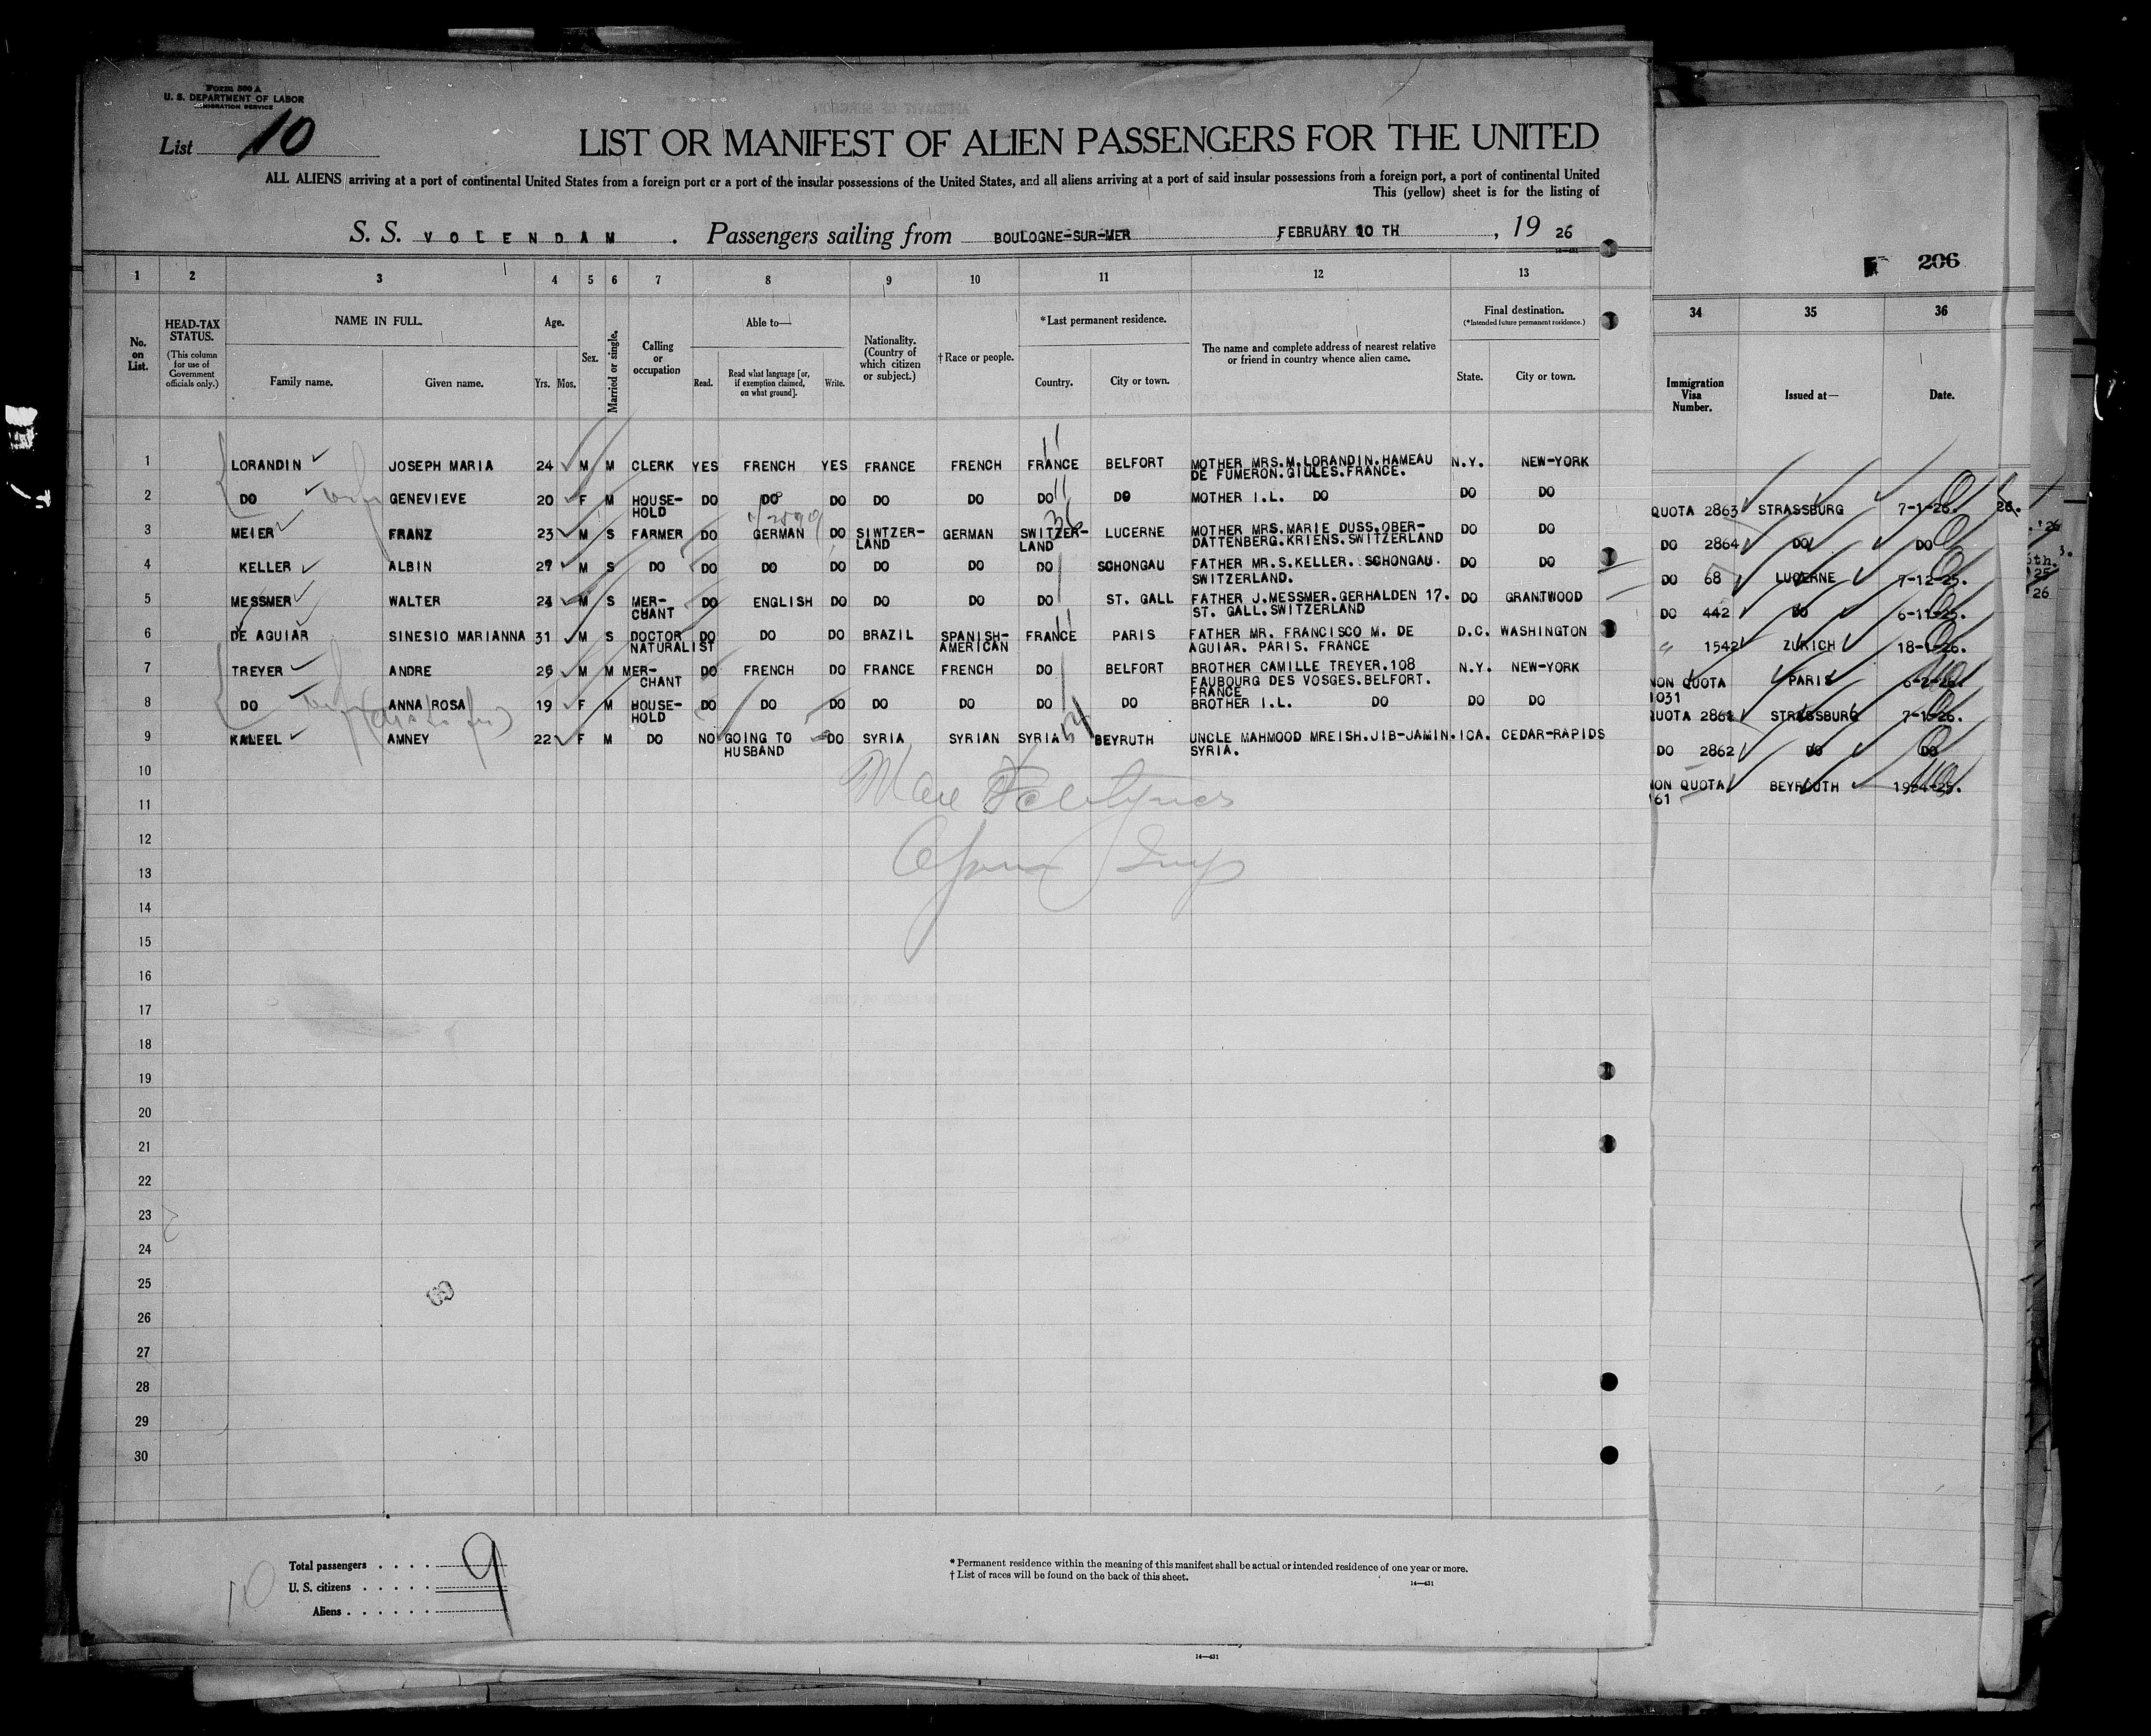 Form 500 A
U. S. DEPARTMENT OF LABOR
IMMIGRATION SERVICE
List 10
LIST OR MANIFEST OF ALIEN PASSENGERS FOR THE UNITED
ALL ALIENS arriving at a port of continental United States from a foreign port or a port of the insular possessions of the United States, and all aliens arriving at a port of said insular possessions from a foreign port, a port of continental United
This (yellow) sheet is for the listing of
S. S. VOLENDAM . Passengers sailing from BOULOGNE-SUR-MER FEBRUARY 10 TH , 19 26
206
1 2 3 4 5 6 7 8 9 10 11 12 13 34 35 36
No. on List.
HEAD-TAX STATUS.
(This column for use of Government officials only.)
NAME IN FULL.
Family name. Given name.
Age.
Yrs. Mos.
Sex.
Married or single.
Calling or occupation
Able to—
Read. Read what language [or, if exemption claimed, on what ground]. Write.
Nationality. (Country of which citizen or subject.)
†Race or people.
*Last permanent residence.
Country. City or town.
The name and complete address of nearest relative or friend in country whence alien came.
Final destination.
(*Intended future permanent residence.)
State. City or town.
Immigration Visa Number.
Issued at—
Date.
1 LORANDIN JOSEPH MARIA 24 M M CLERK YES FRENCH YES FRANCE FRENCH FRANCE BELFORT MOTHER MRS.M.LORANDIN.HAMEAU DE FUMERON.GILLES.FRANCE. N.Y. NEW-YORK
2 DO GENEVIEVE 20 F M HOUSE-HOLD DO DO DO DO DO DO DO MOTHER I.L. DO DO DO
3 MEIER FRANZ 23 M S FARMER DO GERMAN DO SIWTZER-LAND GERMAN SWITZER-LAND LUCERNE MOTHER MRS.MARIE DUSS.OBER-DATTENBERG.KRIENS.SWITZERLAND DO DO
4 KELLER ALBIN 27 M S DO DO DO DO DO DO DO SCHONGAU FATHER MR.S.KELLER. SCHONGAU. SWITZERLAND. DO DO
5 MESSMER WALTER 24 M S MER-CHANT DO ENGLISH DO DO DO DO ST. GALL FATHER J.MESSMER.GERHALDEN 17. ST. GALL.SWITZERLAND DO GRANTWOOD
6 DE AGUIAR SINESIO MARIANNA 31 M S DOCTOR NATURALIST DO DO DO BRAZIL SPANISH-AMERICAN FRANCE PARIS FATHER MR. FRANCISCO M. DE AGUIAR. PARIS. FRANCE D.C. WASHINGTON
7 TREYER ANDRE 26 M M MER-CHANT DO FRENCH DO FRANCE FRENCH DO BELFORT BROTHER CAMILLE TREYER.108 FAUBOURG DES VOSGES.BELFORT. FRANCE N.Y. NEW-YORK
8 DO ANNA ROSA 19 F M HOUSE-HOLD DO DO DO DO DO DO DO BROTHER I.L. DO DO DO
9 KALEEL AMNEY 22 F M DO NO GOING TO HUSBAND DO SYRIA SYRIAN SYRIA BEYRUTH UNCLE MAHMOOD MREISH.JIB-JAMIN. SYRIA. ICA. CEDAR-RAPIDS
QUOTA 2863 STRASSBURG 7-1-26.
DO 2864 DO DO
DO 68 LUCERNE 7-12-25.
DO 442 DO 6-11-25.
" 1542 ZURICH 18-1-26.
NON QUOTA 1031 PARIS 6-2-26.
QUOTA 2861 STRASSBURG 7-1-26.
DO 2862 DO DO
NON QUOTA 161 BEYROUTH
10
11
12
13
14
15
16
17
18
19
20
21
22
23
24
25
26
27
28
29
30
Total passengers . . . . 9
U. S. citizens . . . . .
Aliens . . . . . .
10
* Permanent residence within the meaning of this manifest shall be actual or intended residence of one year or more.
† List of races will be found on the back of this sheet.
14—431
14—431